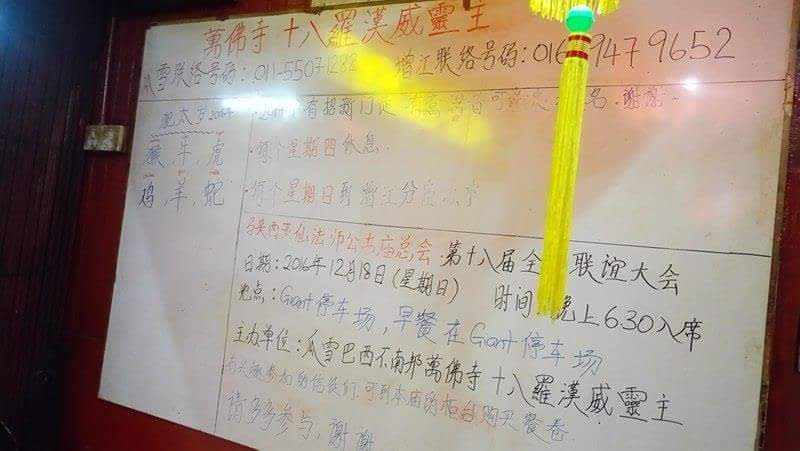 萬佛寺 十八羅漢威靈主
瓜雪联络号码: 011-55071282
增江联络号码: 016 9479652
犯太岁
猴, 牛, 虎
鸡, 羊, 蛇
有招新门徒 谢谢
· 每个星期四休息.
· 每个星期日到增江分
仙法师公 庙总会 第十八届全 联谊大会
日期: 2016年12月18日 (星期日)
时间 晚上6.30入席
地点: Giant停车场, 早餐在Giant停车场
主办单位: 瓜雪巴西不南邦萬佛寺 十八羅漢威靈主
有兴趣参加的信徒们, 可到本庙的柜台购买餐卷.
请多多参与, 谢谢